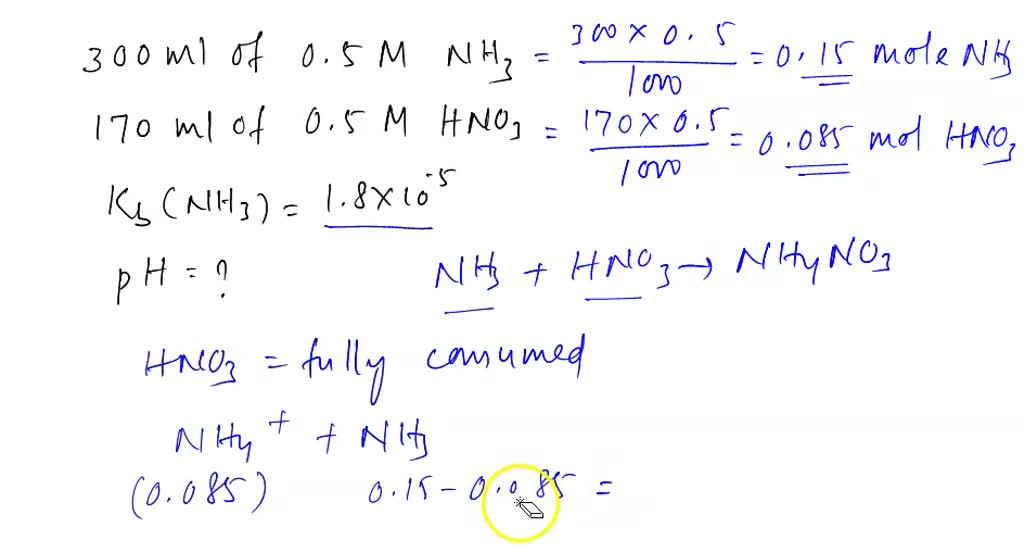 300 ml of 0.5 M NH₃ = 300 × 0.5 / 1000 = 0.15 mole NH₃
170 ml of 0.5 M HNO₃ = 170 × 0.5 / 1000 = 0.085 mol HNO₃
Kb (NH₃) = 1.8 × 10⁻⁵
pH = ?
NH₃ + HNO₃ → NH₄NO₃
HNO₃ = fully consumed
NH₄⁺ + NH₃
(0.085) 0.15 - 0.085 =